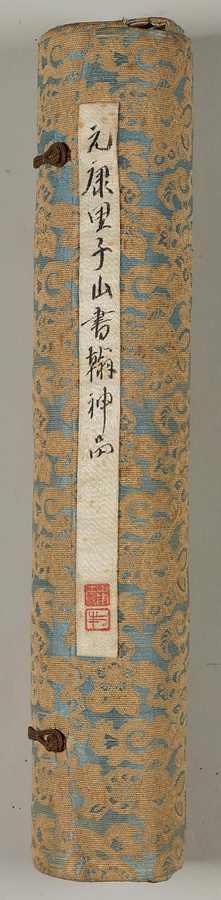 元康里子山書翰神品